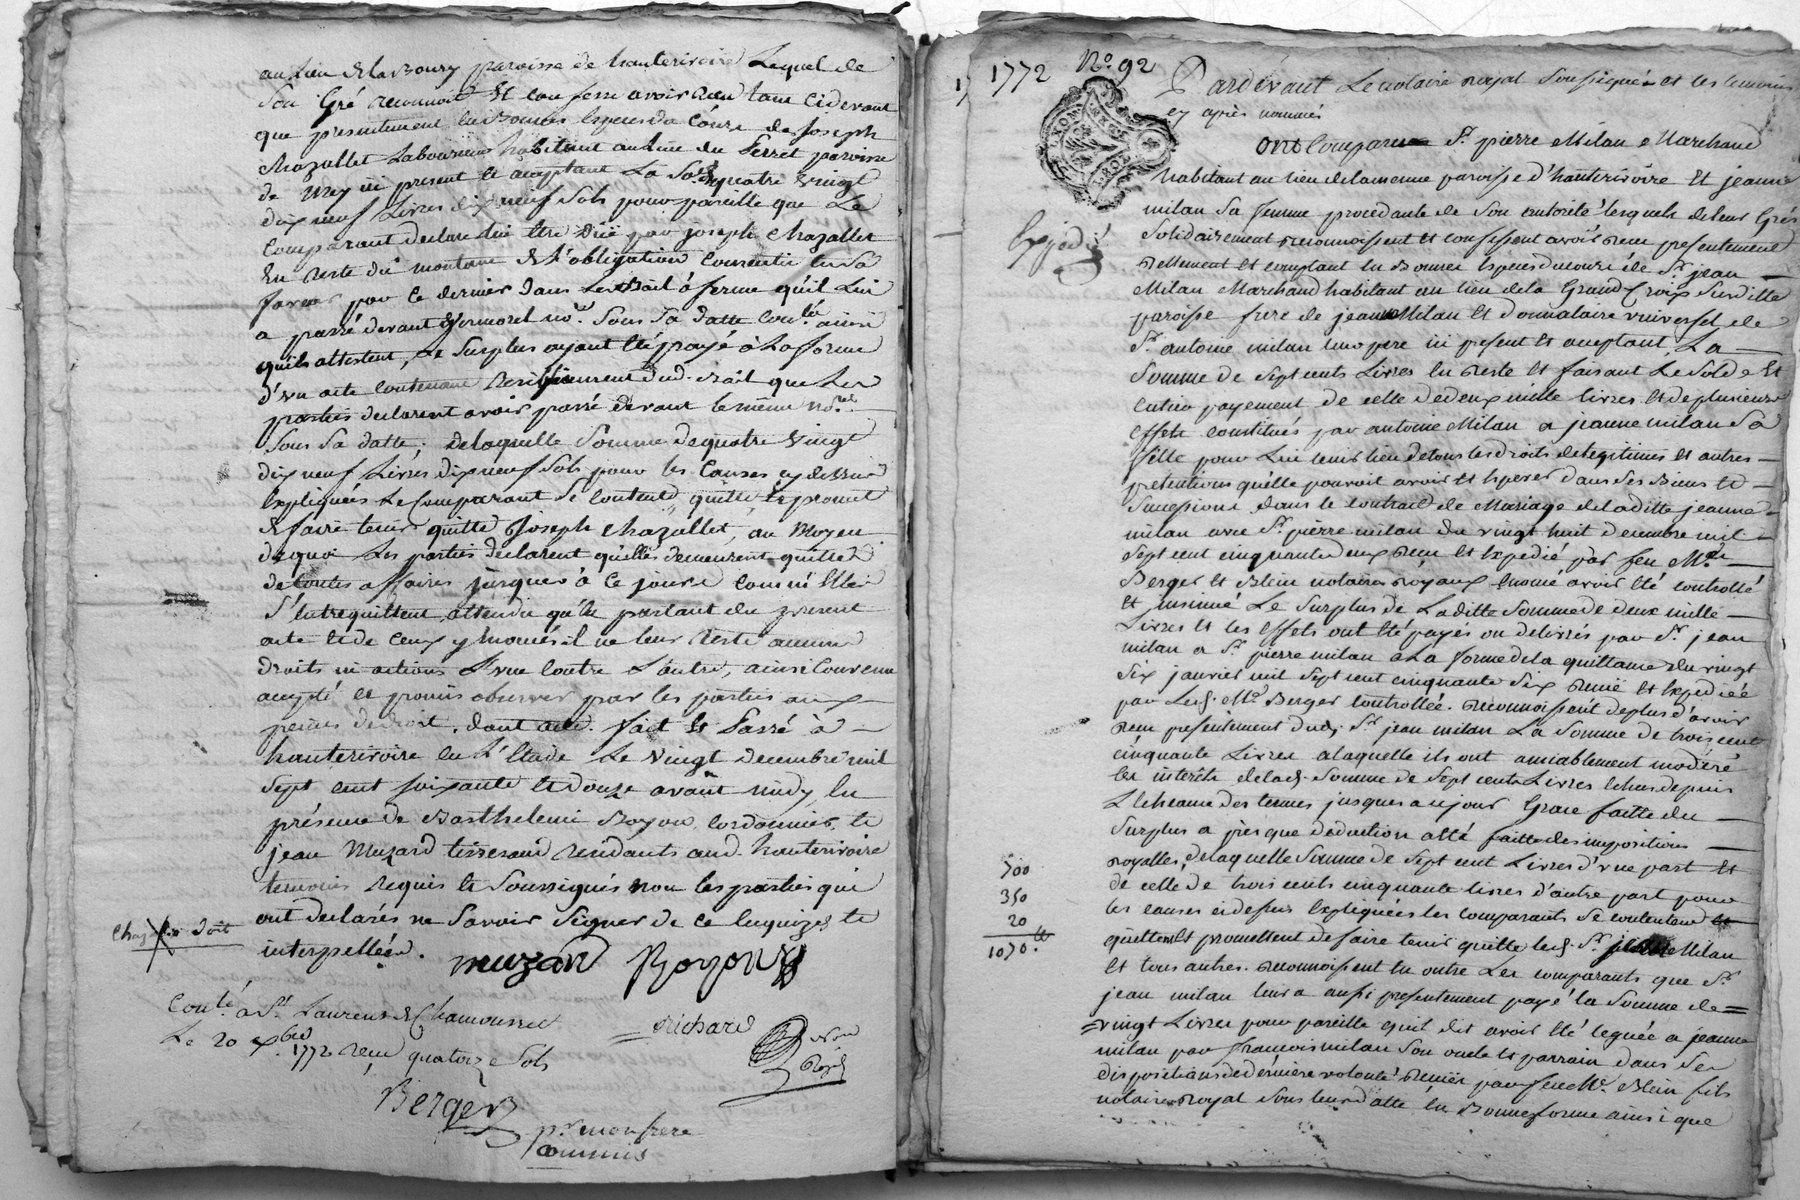 au Lieu de la Boury paroisse de hauterivoire Lequel de
Son Gré reconnoit Et confesse avoir reçu tant cidevant
que presentement en Bonnes Especes du Cours de Joseph
chazallet Laboureur habitant au lieu du Serret paroisse
de Mey ici present et acceptant La So.e de quatre vingt
dix neuf Livres dix neuf Sols pour pareille que Le
Comparant declare lui Etre düe par joseph chazallet
En reste du montant de L'obligation Consentie en Sa
faveur par ce dernier dans Le Bail à ferme qu'il Lui
a passé devant no.re Sous Sa datte Con.lé ainsi
qu'ils attestent, Le Surplus ayant Eté payé à La forme
d'vn acte contenant dud. Bail que Les
parties declarent avoir passé devant le même no.re
Sous Sa datte; de laquelle Somme de quatre vingt
dix neuf Livres dix neuf Sols pour les Causes cy dessus
Expliquées Le Comparant Se Contente, quitte Et promet
de faire tenir quitte Joseph chazallet, au Moyen
de quoi Les parties declarent quelles demeurent quittes
de toutes affaires jusques à Ce jour comme Elles
S'Entrequittent attendu qu'En parlant du present
acte Et de Ceux y Enoncés il ne leur reste aucuns
droits ni actions L'vne Contre L'autre, ainsi Convenu
accepté et promis observer par les parties aux
peines de droit, dont acte. fait Et Passé à
hauterivoire En L'Etude Le vingt decembre mil
Sept cent soixante Et douze avant midy, En
présence de Barthelemi Royon cordonnier, et
jean Muzard tisserand residants aud. hauterivoire
temoins requis Et Soussignés non les parties qui
ont declarés ne Savoir Signer de ce Enquizes Et
interpellées.
muzard Royon
Con.lé à S.t Laurent de Chamousset
Le 20 x.bre 1772 reçu quatorze Sols
Richard
no.re Royal
Berger
p.r mon frere
commis
1772 N.o 92
Pardevant Le notaire royal Soussigné et les temoins
cy après nommés
ont Comparu S.r pierre Milan Marchand
habitant au lieu de la menue paroisse d'hauterivoire Et jeanne
milan Sa femme procedante de Son autorité lesquels de leur Gré
Solidairement reconnoissent et confessent avoir reçu presentement
reellement et comptant en Bonnes Especes du cours de S.r jean
Milan Marchand habitant au lieu de la Grand Croix Susditte
paroisse frere de jeanne Milan Et Donnataire vniversel de
S.r antoine milan leur pere ici present et acceptant, La
Somme de Sept cents Livres En reste Et faisant Le Solde Et
Entier payement de celle de deux mille livres Et de plusieurs
Effets constitués par antoine Milan a jeanne milan Sa
fille pour Lui tenir lieu de tous les droits de legitimes Et autres
pretentions qu'elle pouvoit avoir Et Esperer dans Ses Biens Et
Successions dans le contrait de Mariage de laditte jeanne
milan avec S.r pierre milan du vingt huit decembre mil
Sept cent cinquante deux reçu Et Expedié par feu M.es
Berger Et Blein notaires royaux Enoncé avoir Eté controllé
Et insinué Le Surplus de Laditte Somme de deux mille
Livres Et les Effets ont Eté payés ou delivrés par S.r jean
milan a S.r pierre milan a La forme de la quittance du vingt
Six janvier mil Sept cent cinquante Six reçüe Et Expediée
par Led. M.e Berger Controllée. reconnoissent de plus d'avoir
reçu presentement dud. S.r jean milan La Somme de trois cent
cinquante Livres a laquelle ils ont amiablement modéré
les intérêts de lad. Somme de Sept cents Livres Echus depuis
L'Echeance des termes jusques aujour Grace faitte du
Surplus a près que deduction a Eté faitte des impositions
royalles, de laquelle Somme de Sept cent Livres d'vne part Et
de celle de trois cents cinquante livres d'autre part pour
les causes cidessus Expliquées les comparants Se contentent
quittent Et promettent de faire tenir quitte led. S.r jean Milan
Et tous autres. reconnoissent En outre Les comparants que S.r
jean milan leur a aussi presentement payé la Somme de
vingt Livres pour pareille qu'il dit avoir Eté leguée a jeanne
milan par françois milan Son oncle Et parrain dans Ses
dispositions de derniere volonté reçües par feu M.e Blein fils
notaire royal Sous leur datte En Bonne forme ainsi que
Expedié
700
350
20
1070.